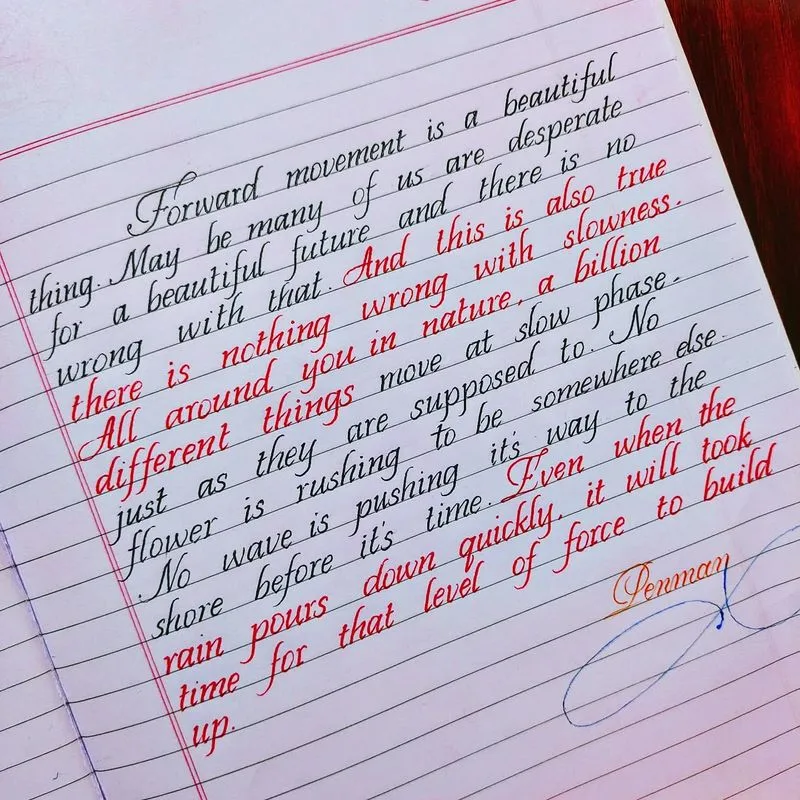 Forward movement is a beautiful
thing. May be many of us are desperate
for a beautiful future and there is no
wrong with that. And this is also true
there is nothing wrong with slowness.
All around you in nature, a billion
different things move at slow phase.
just as they are supposed to. No
flower is rushing to be somewhere else.
No wave is pushing it's way to the
shore before it's time. Even when the
rain pours down quickly, it will took
time for that level of force to build
up.
Penman